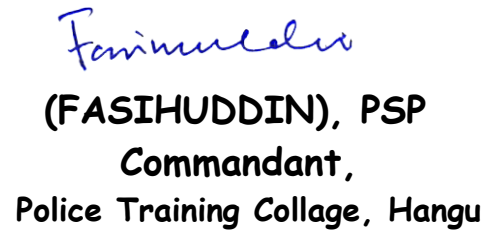 Fasihuddin
(FASIHUDDIN), PSP
Commandant,
Police Training Collage, Hangu